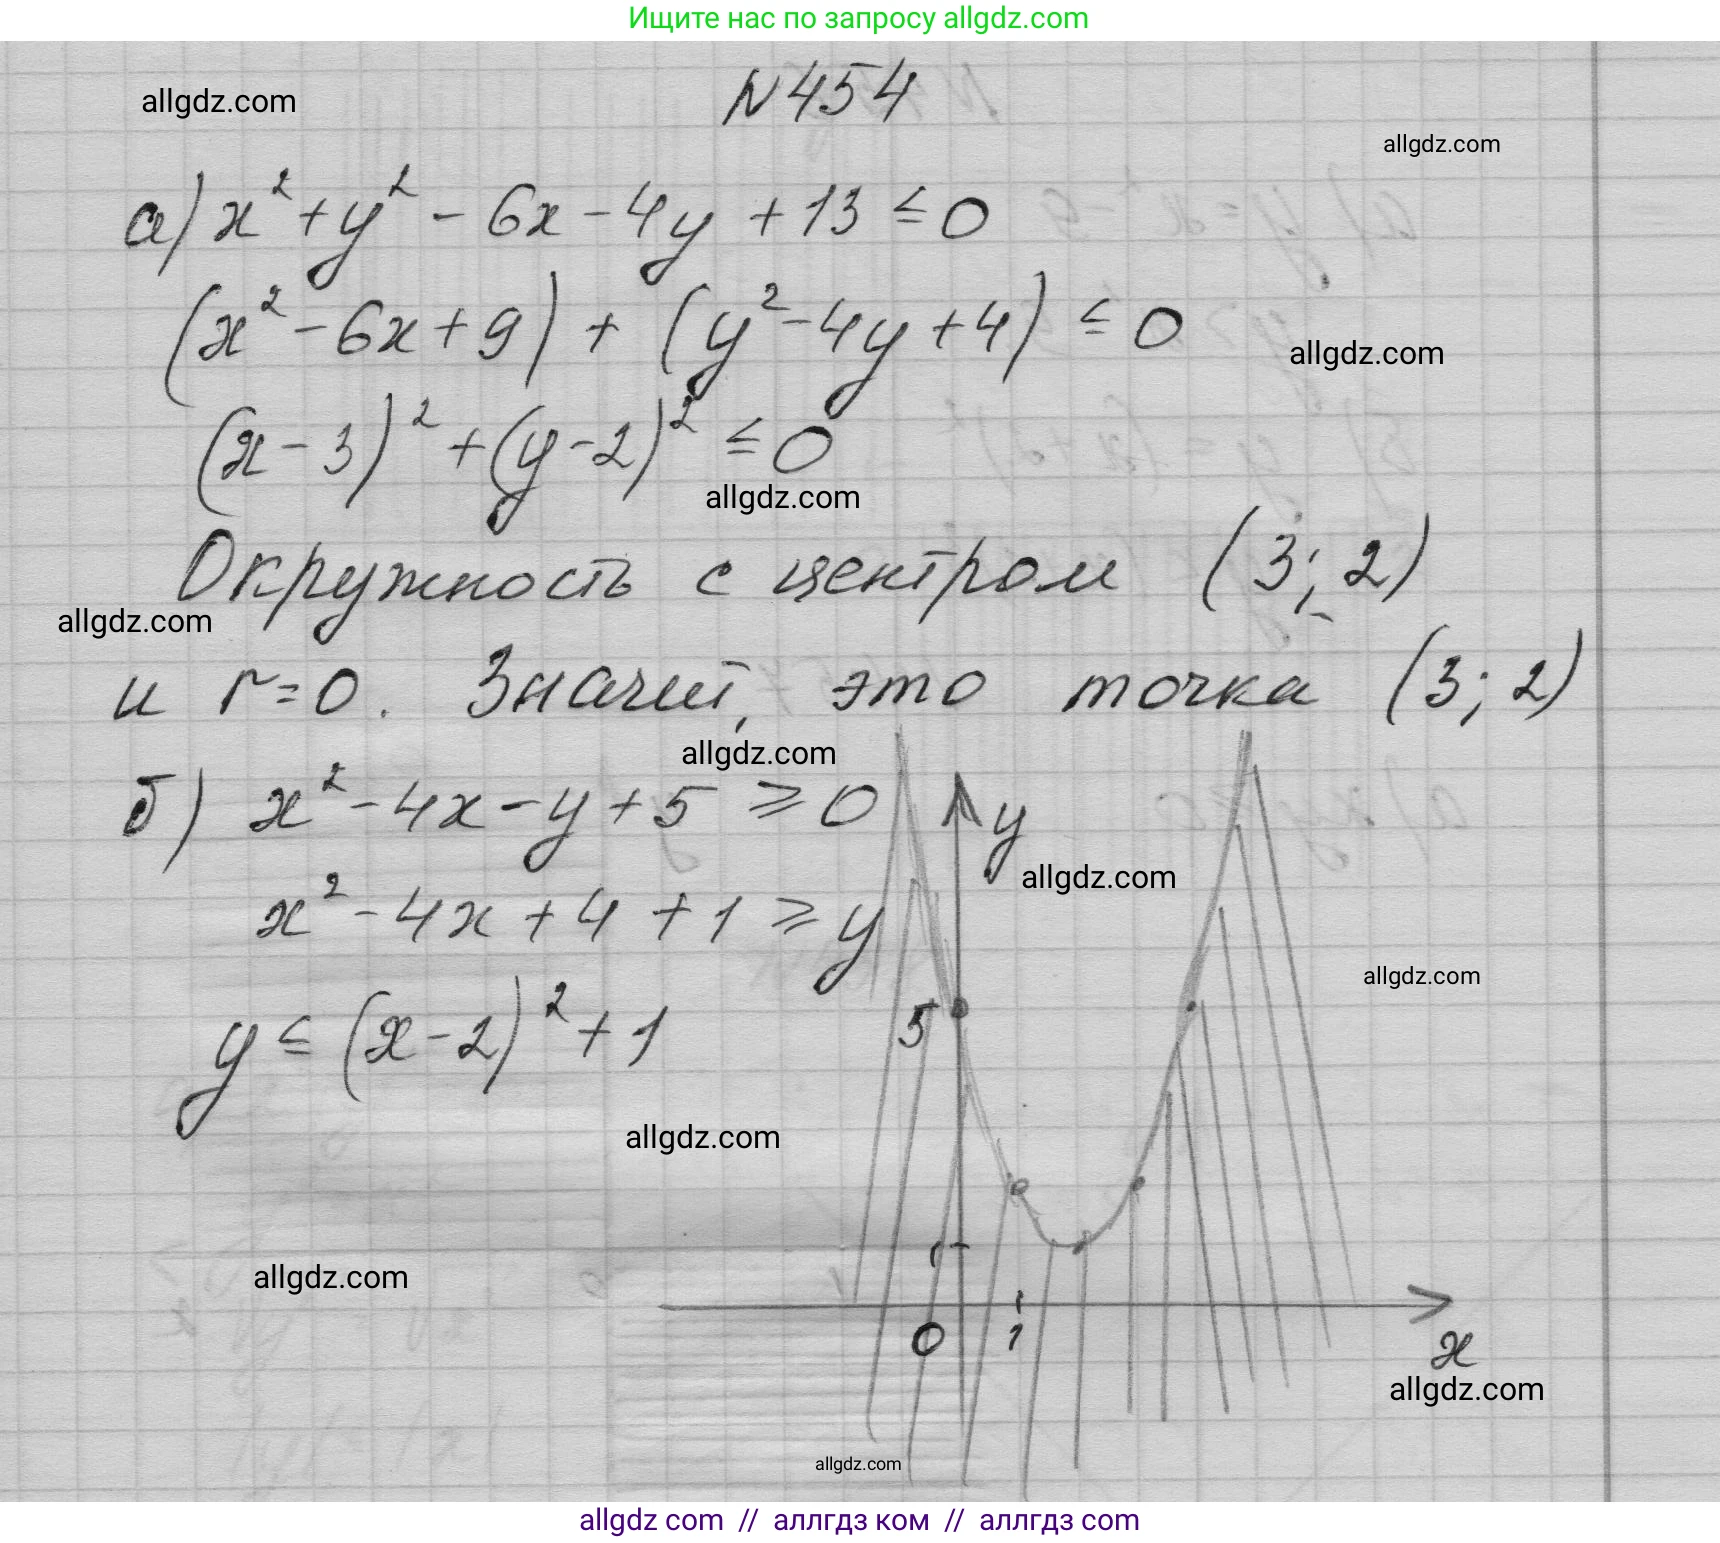 Ищите нас по запросу allgdz.com
№454
allgdz.com
allgdz.com
а) x² + y² - 6x - 4y + 13 ≤ 0
(x² - 6x + 9) + (y² - 4y + 4) ≤ 0
allgdz.com
(x - 3)² + (y - 2)² ≤ 0
allgdz.com
Окружность с центром (3; 2)
allgdz.com
и r = 0. Значит, это точка (3; 2)
allgdz.com
б) x² - 4x - y + 5 ≥ 0
y
allgdz.com
x² - 4x + 4 + 1 ≥ y
allgdz.com
5
y ≤ (x - 2)² + 1
allgdz.com
allgdz.com
0 1 x
allgdz.com
allgdz.com
allgdz com // аллгдз ком // аллгдз com